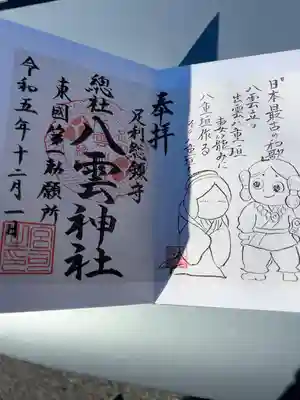 奉拝
足利総鎮守
總社 八雲神社
東國第一勅願所
令和五年十二月一日
日本最古の和歌
八雲立つ
出雲八重垣
妻籠みに
八重垣作る